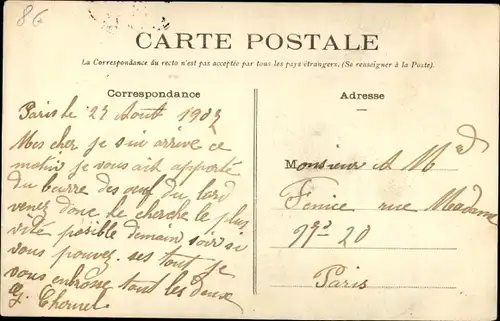 86
CARTE POSTALE
La Correspondance du recto n'est pas acceptée par tous les pays étrangers. (Se renseigner à la Poste).
Correspondance
Paris le 27 Aout 1907
Mes cher je sui arrive ce
matin je vous ait apporté
du beurre des oeuf du lard
venez donc le cherche le plus
vite posible demain soir si
vous pouvez. ses tout je
vous enbrasse tout les deux
Adresse
Monsieur A Md
Fenice rue Madame
No 20
Paris